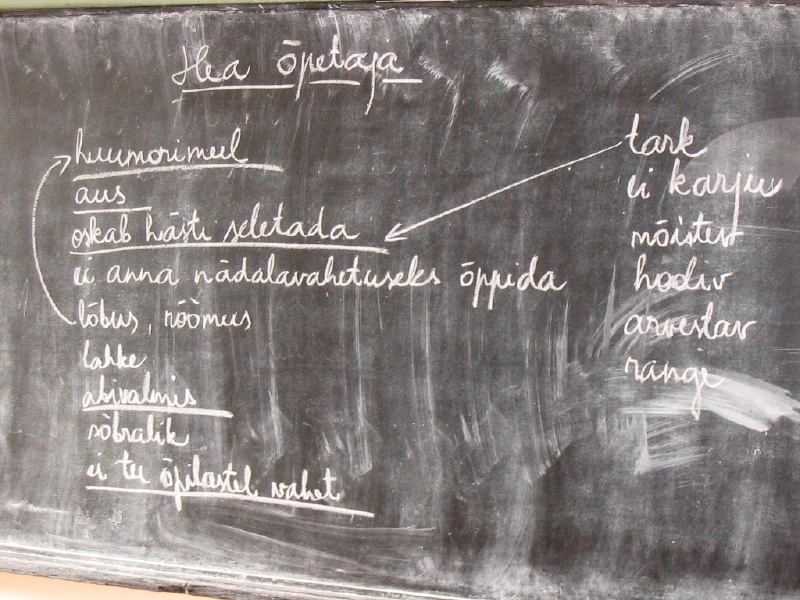 Hea õpetaja
huumorimeel
aus
oskab hästi seletada
ei anna nädalavahetuseks õppida
lõbus, rõõmus
lahke
abivalmis
sõbralik
ei tee õpilastel vahet
tark
ei karju
mõistev
hooliv
arvestav
range